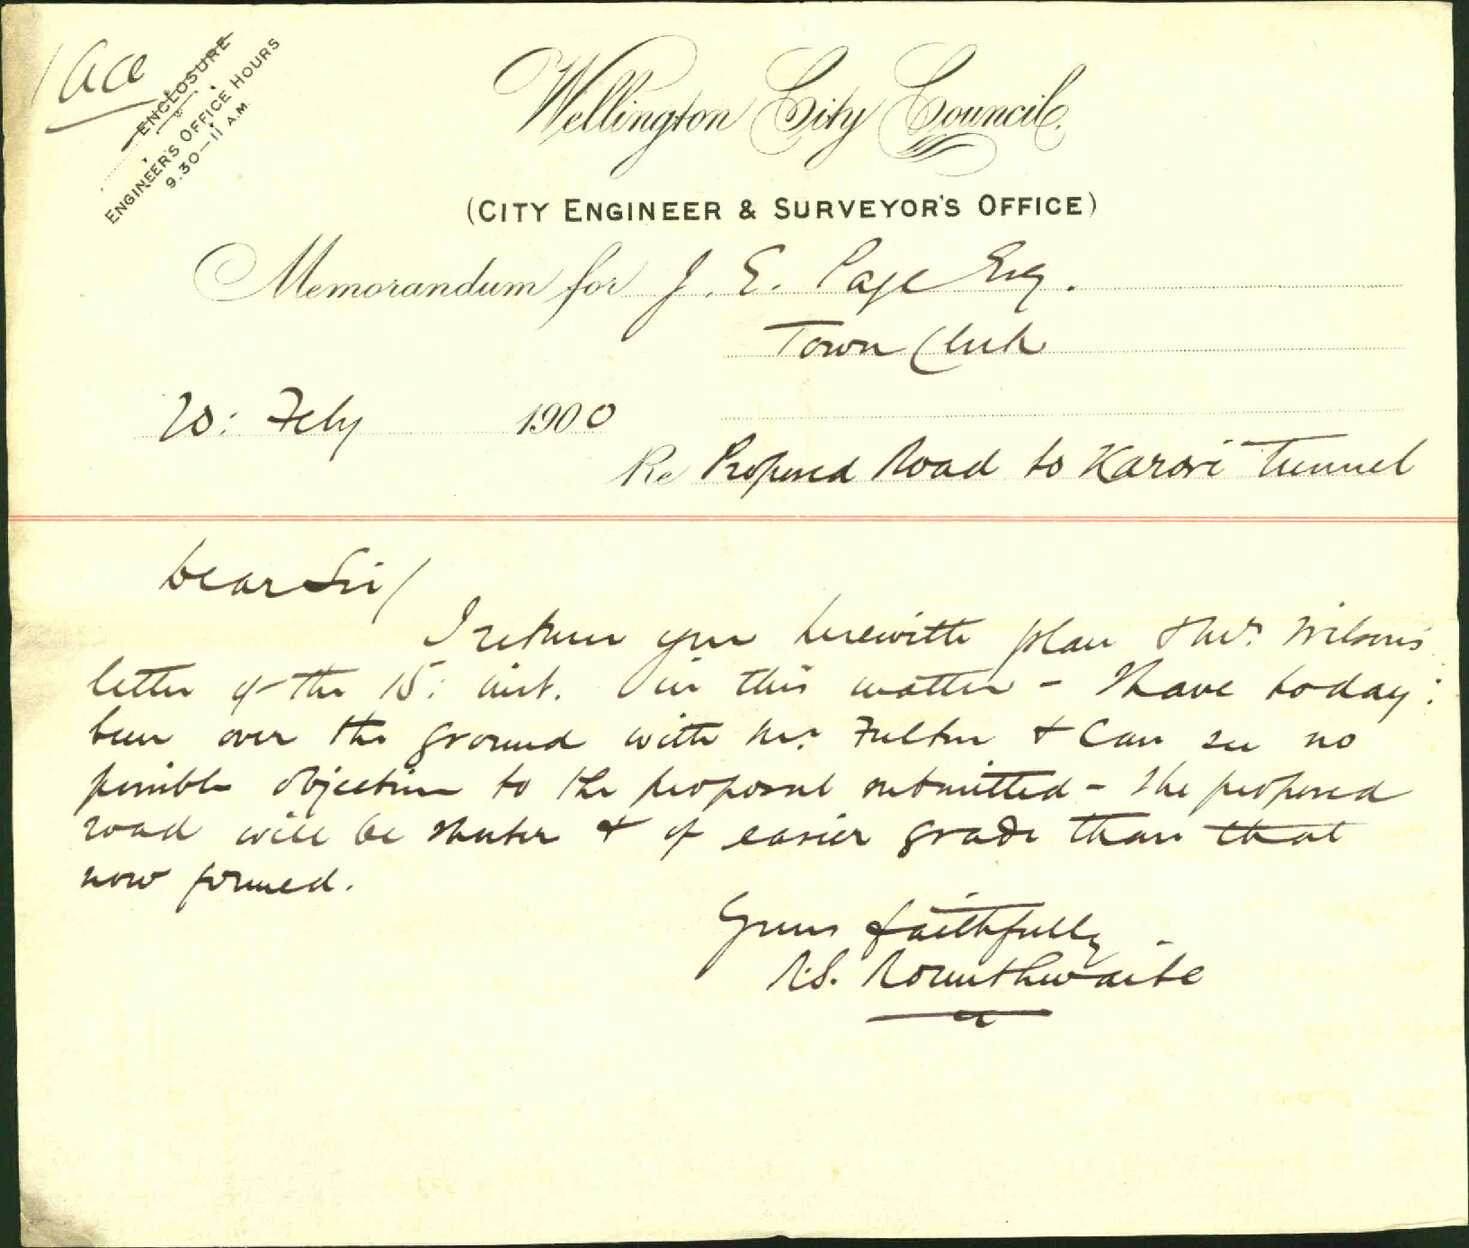 Ace
ENCLOSURE
ENGINEER'S OFFICE HOURS
9.30-11 A.M.
Wellington City Council.
(CITY ENGINEER & SURVEYOR'S OFFICE)
Memorandum for J. E. Page Esq.
Town Clerk
20: Feby 1900
Re Proposed Road to Karori Tunnel
Dear Sir/
I return you herewith plan & Mr. Wilson's
letter of the 15: inst. in this matter - I have today
been over the ground with Mr. Fulton & Can see no
possible objection to the proposal submitted - The proposed
road will be shorter & of easier grade than that
now formed.
Yours faithfully
R.S. Rounthwaite